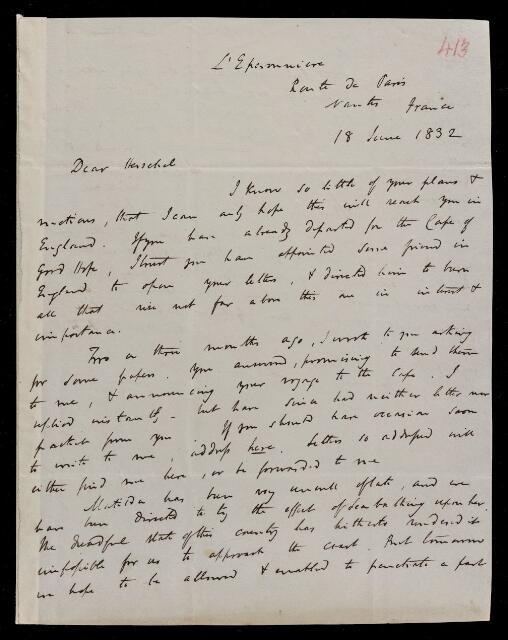 413
L'Eperonniere
Route de Paris
Nantes France
18 June 1832
Dear Herschel
I know so little of your plans &
motions, that I can only hope this will reach you in
England. If you have already departed for the Cape of
Good Hope, I trust you have appointed some friend in
England to open your letters, & directed him to burn
all that rise not far above this one in interest &
importance.
Two or three months ago, I wrote to you asking
for some papers. You answered, promising to send them
to me, & announcing your voyage to the Cape. I
replied instantly - but have since had neither letter nor
packet from you. If you should have occasion soon
to write to me, address here. Letters so addressed will
either find me here, or be forwarded to me.
Matilda has been very unwell of late, and we
have been directed to try the effect of sea bathing upon her.
The dreadful state of this country has hitherto rendered it
impossible for us to approach the coast. But tomorrow
we hope to be allowed & enabled to penetrate a part